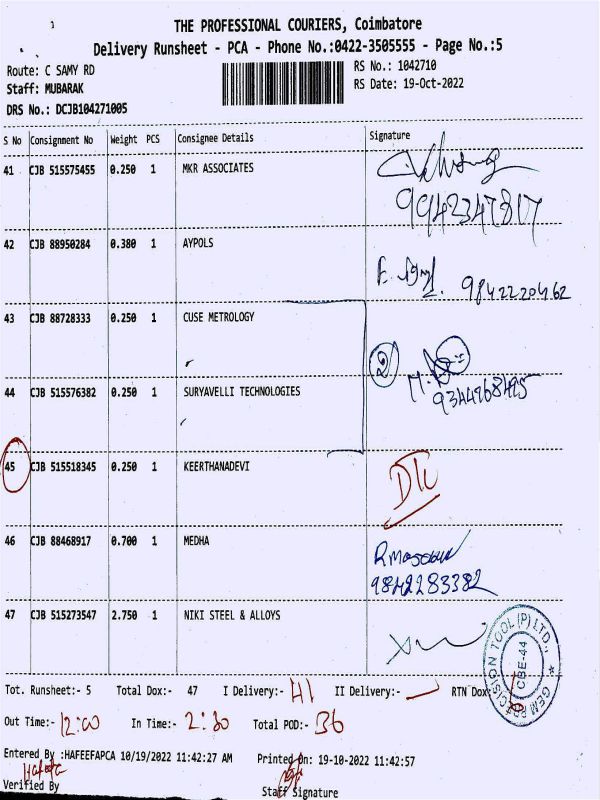 THE PROFESSIONAL COURIERS, Coimbatore
Delivery Runsheet - PCA - Phone No.:0422-3505555 - Page No.:5
Route: C SAMY RD
RS No.: 1042710
Staff: MUBARAK
RS Date: 19-Oct-2022
DRS No.: DCJB104271005
S No Consignment No Weight PCS Consignee Details Signature
41 CJB 515575455 0.250 1 MKR ASSOCIATES
9942347817
42 CJB 88950284 0.380 1 AYPOLS
9842220462
43 CJB 88728333 0.250 1 CUSE METROLOGY
44 CJB 515576382 0.250 1 SURYAVELLI TECHNOLOGIES
9344968495
45 CJB 515518345 0.250 1 KEERTHANADEVI
46 CJB 88468917 0.700 1 MEDHA
9842283382
47 CJB 515273547 2.750 1 NIKI STEEL & ALLOYS
GEM PRECISION TOOL (P) LTD.,
CBE-44
Tot. Runsheet:- 5 Total Dox:- 47 I Delivery:- 41 II Delivery:- RTN Dox:
Out Time:- 12:00 In Time:- 2:30 Total POD:- 36
Entered By :HAFEEFAPCA 10/19/2022 11:42:27 AM Printed On: 19-10-2022 11:42:57
Verified By Staff Signature